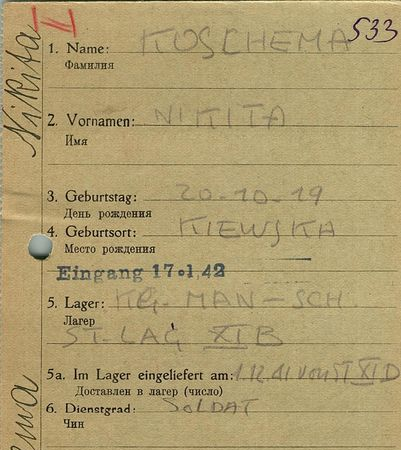 Nikita
II
533
1. Name: KOSCHEMA
Фамилия
2. Vornamen: NIKITA
Имя
3. Geburtstag: 20-10-19
День рождения
4. Geburtsort: KIEWSKA
Место рождения
Eingang 17.1.42
5. Lager: KG-MAN-SCH
Лагерь
ST-LAG XIB
5a. Im Lager eingeliefert am: 1.12.41 von ST XID
Доставлен в лагер (число)
6. Dienstgrad: SOLDAT
Чин